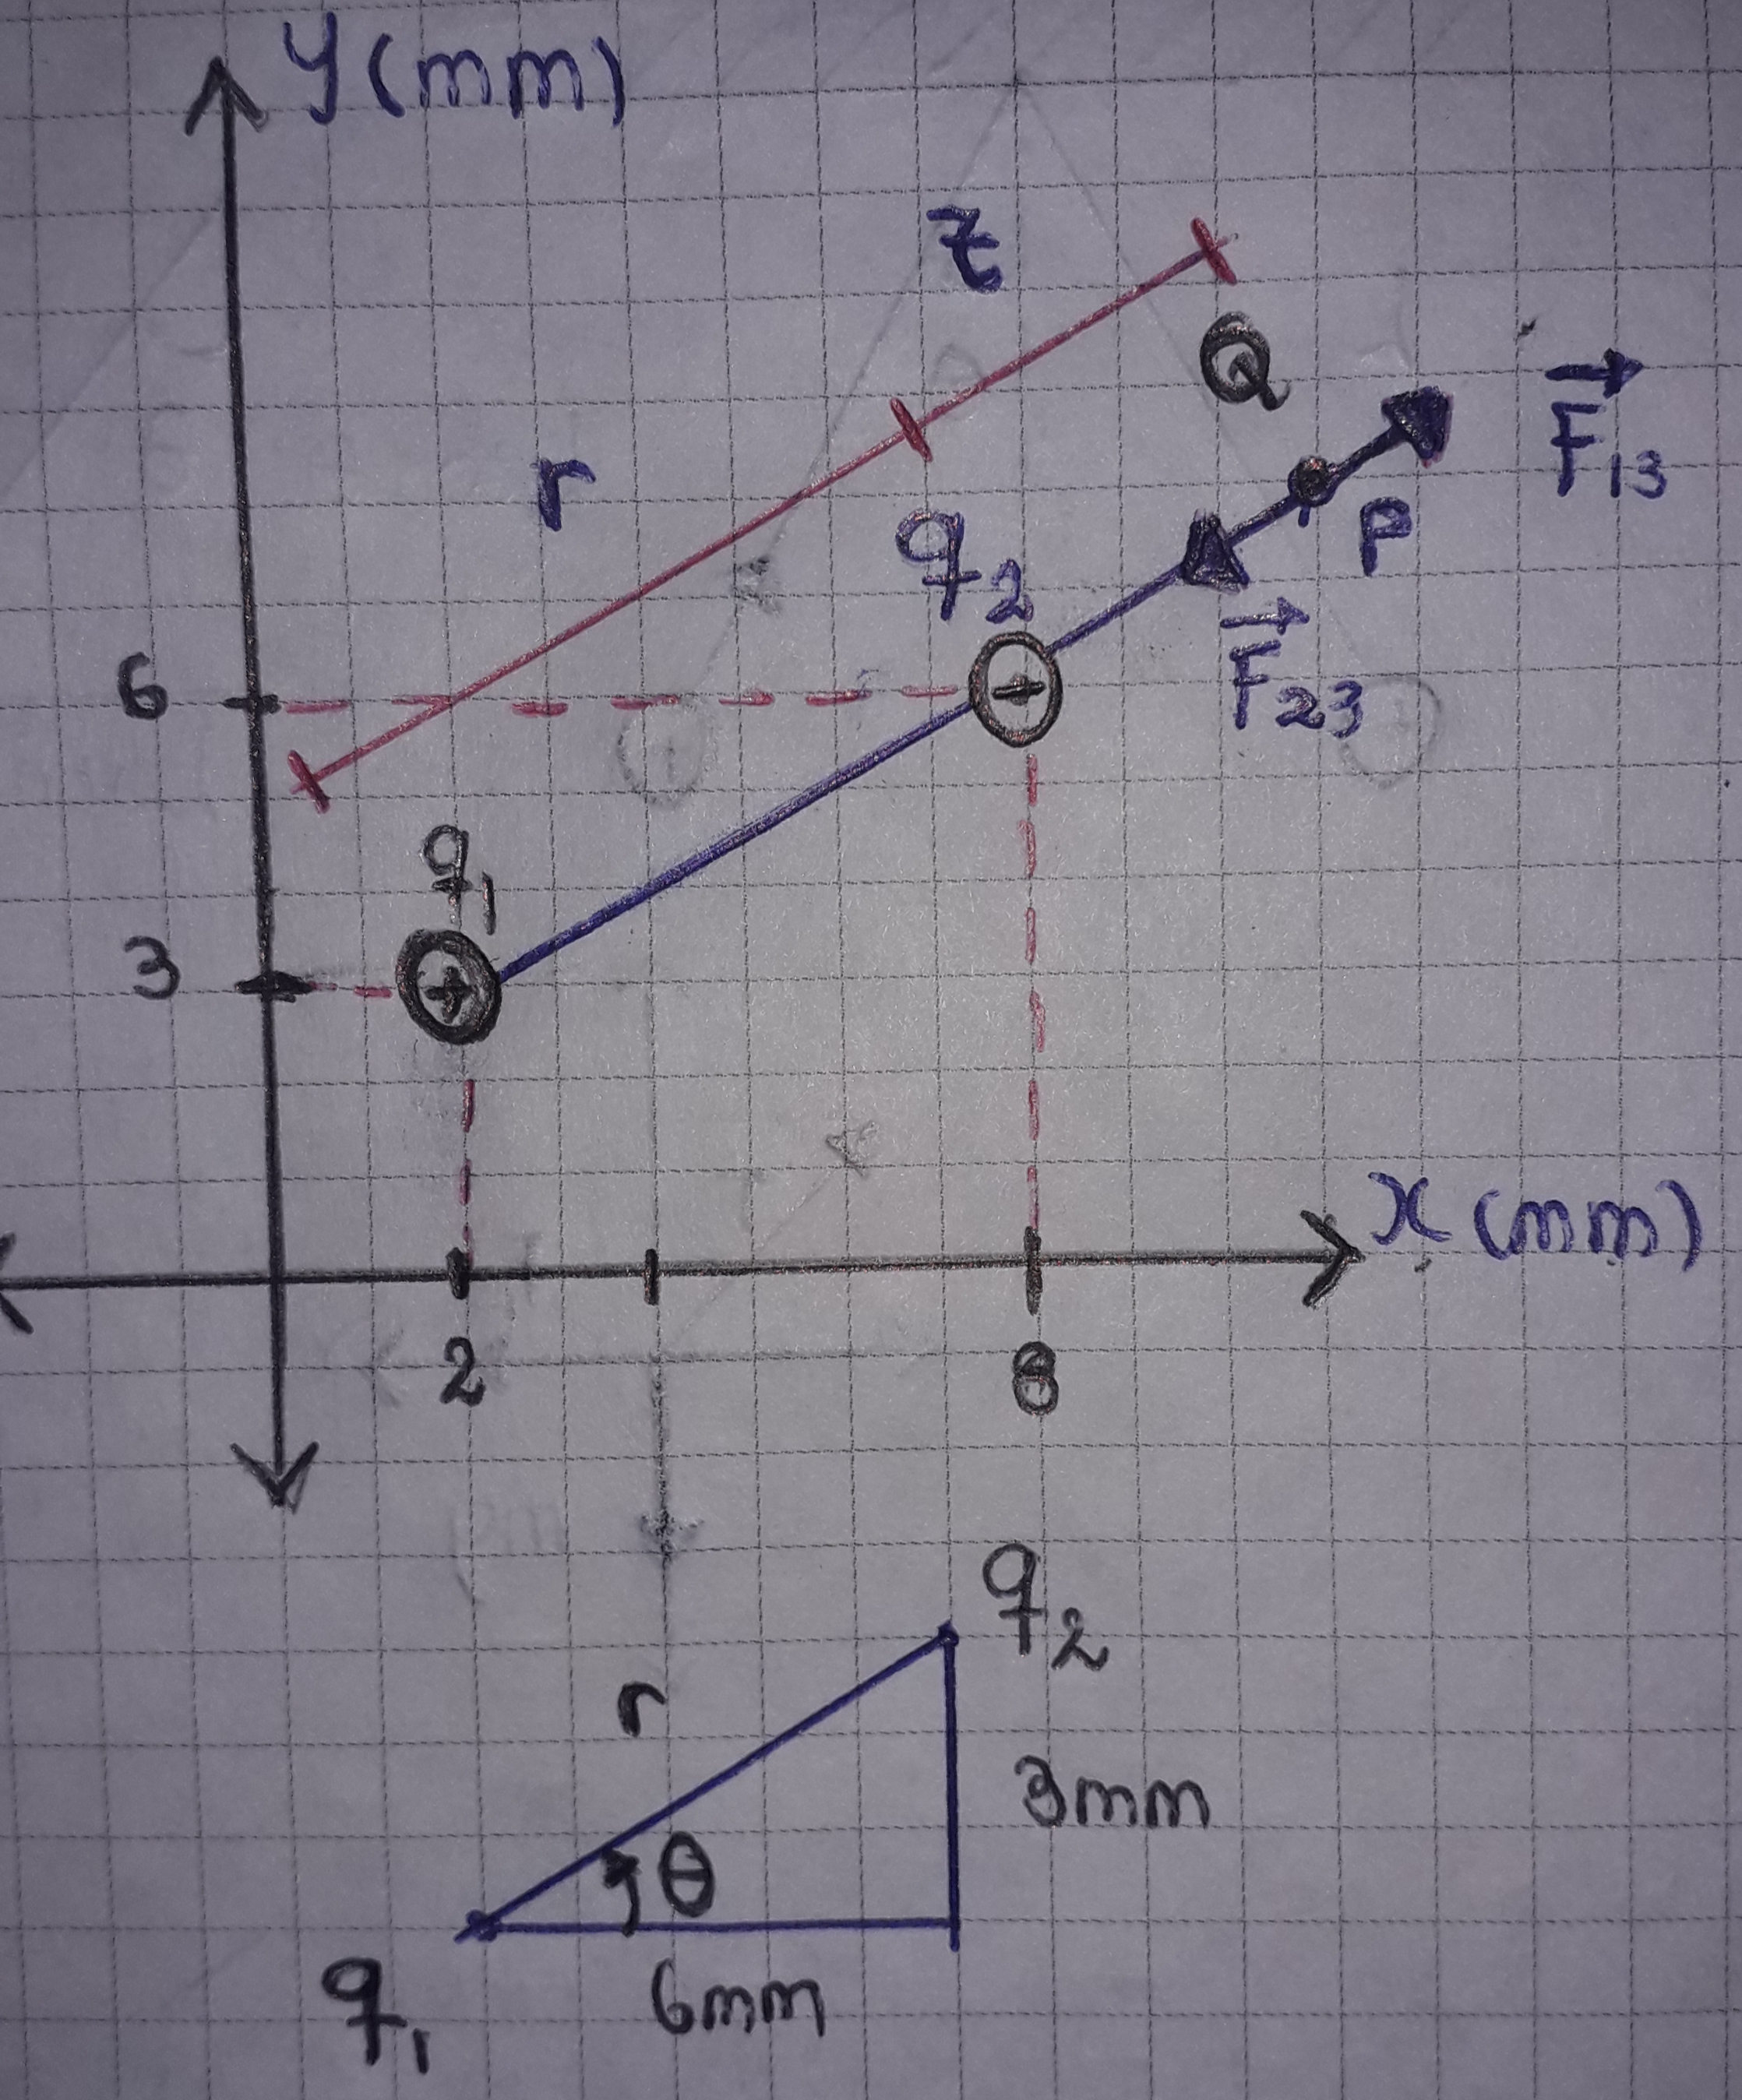 y (mm)
z
Q
F₁₃
r
q₂
P
F₂₃
6
+
q₁
3
+
x (mm)
2
8
q₂
r
3mm
θ
6mm
q₁